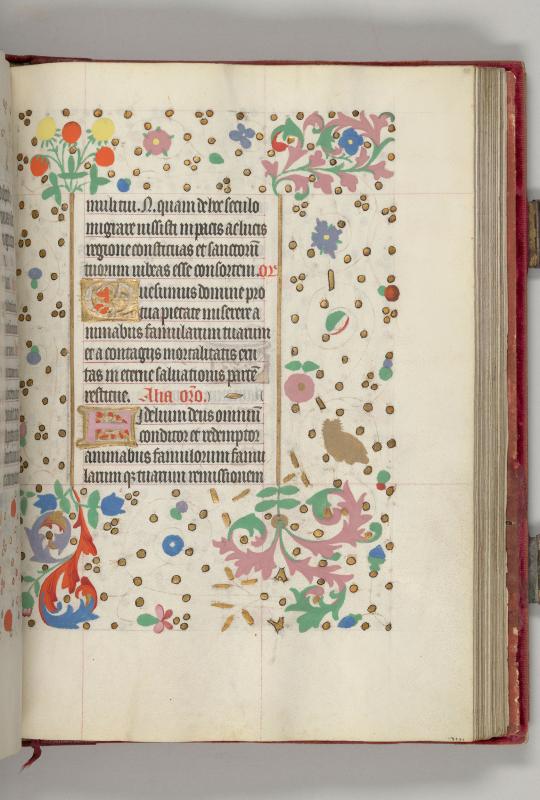 muliitui. N. quam de hoc seculo
migrare iussisti in pacis ac lucis
regione constituas et sanctorū
tuorum iubeas esse consortem. Or̄
Quesumus domine pro
tua pietate miserere a
nimabus famularum tuarum
et a contagiis mortalitatis exu
tas in eterne saluationis partē
restitue. Alia oro.
Fidelium deus omniū
conditor et redemptor
animabus famulorum famu
larum q̄ tuarum remissionem